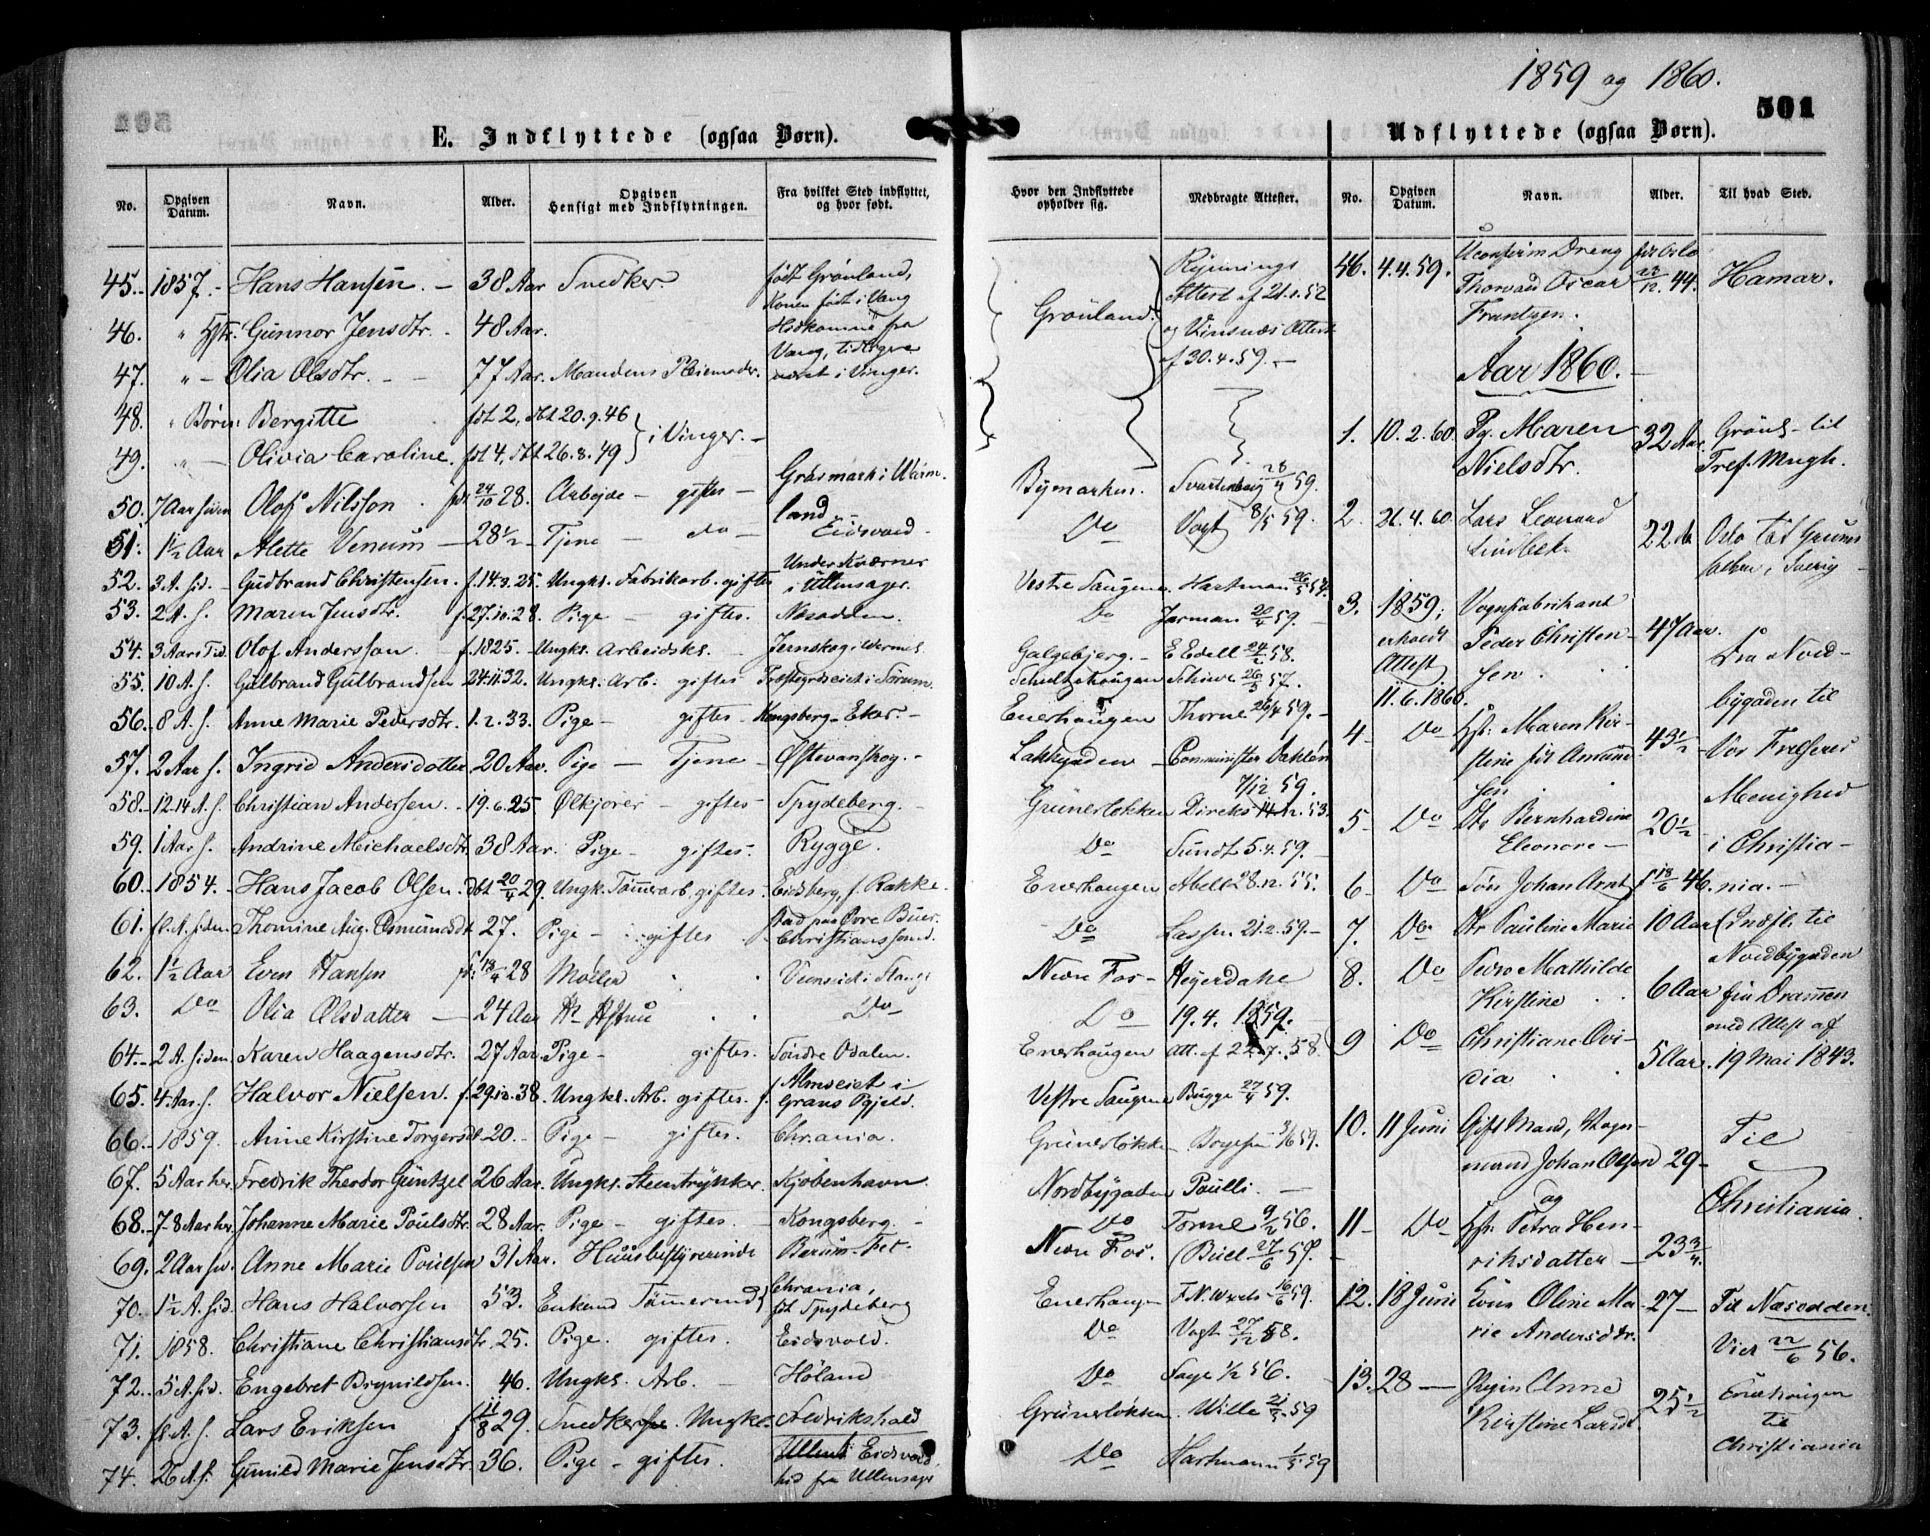 1859 og 1860.
501
E. Indflyttede (ogsaa Børn).
Udflyttede (ogsaa Børn).
No. Opgiven Datum. Navn. Alder. Opgiven Hensigt med Indflytningen. Fra hvilket Sted indflyttet, og hvor født. Hvor den Indflyttede opholder sig. Medbragte Attester.
No. Opgiven Datum. Navn. Alder. Til hvad Sted.
45. 1857. Hans Hansen. 38 Aar Snedker. født Grønland, Konen født i Vang Grønland. Attest af 21.1.52
46. " Gunnor Jensdtr. 48 Aar. Hidkomne fra Vang, tidligere og Vinsnæs Attest
47. " Olia Olsdtr. 77 Aar. Mandens været i Vinger. af 30.4.59.
48. " Børn: Bergitte fdt 2, dbt 20.9.46
49. " Olivia Caroline. fdt 4, dbt 26.8.49 i Vinger.
50. 7 Aar siden Olof Nilsson. fdt 24/10 28. Arbejde giftes Gräsmark i Wärmland Bymarken. Svartenberg 28/4 59.
51. 1½ Aar Alette Venum 28½ Tjene do Eidsvold Do Vogt 8/5 59.
52. 3 A. sid. Gudbrand Christensen. f. 14.3.25. Ungk. Fabrikarb. giftes Under Kværner i Ullensager. Vestre Saugene. Hartman
53. 2 A. s. Maren Jensdtr. f. 27.10.28. Pige giftes. Nesodden. Do Jorman 59.
54. 3 Aars Tid. Olof Andersson f. 1825. Ungk. Arbeidsk. Jernskog i Wermel. Galgebjerg. E Edell 24/2 58.
55. 10 A. s. Gulbrand Gulbrandsen 24.11.32. Ungk. Arb. giftes Præstegrdseiet i Sørum. Schultzehaugen 57.
56. 8 A. s. Anne Marie Pedersdtr. 1.2.33. Pige giftes Kongsberg Eker. Enerhaugen Thorne 59.
57. 2 Aar s. Ingrid Andersdotter 20 Aar. Pige Tjene Østevanskog. Lakkegaden Communister Dahlén 7/12 59.
58. 12.14 A. s. Christian Andersen. 19.6.25. Ølkjører giftes Spydeberg. Grünerløkken Dircks 53.
59. 1 Aar s. Andrine Michaelsdtr. 38 Aar. Pige giftes. Rygge. Do Sundt 5.4.59.
60. 1854. Hans Jacob Olsen. dbt 20/4 29. Ungk. Tømmerarb. giftes Eidsberg, f. Rakke Enerhaugen Abell 28.12.55.
61. fl. A. siden. Thomine Aug. Osmundsdt. 27. Pige giftes Christianssund. Do Lassen 21.2.59
62. 1½ Aar Even Hansen fdt 18/4 28 Møller i Stange Nedre Fos Heyerdahl
63. Do Olia Olsdatter 24 Aar Hs Hstru Do Do 19.4.1859.
64. 2 A. siden Karen Haagensdtr. 27 Aar. Pige giftes. Søndre Odalen. Enerhaugen Att. af 22.7.58.
65. 4 Aar s. Halvor Nielsen. f. 29.12.38. Ungk. Arb. giftes. f. Almseiet i Grans Pgjeld. Vestre Saugene Bugge 27/4 59.
66. 1859. Anne Kirstine Torgersdt. 20. Pige giftes. Chr.ania. Grünerløkke Boyesen 3/6 59.
67. 5 Aar her. Fredrik Theodor Güntzel 26 Aar. Ungk. Steentrykker. Kjøbenhavn. Nordbygaden Paulli.
68. 7 8 Aar her. Johanne Marie Poulsdtr. 28 Aar. Pige giftes. Kongsberg. Do Torme 56.
69. 2 Aar sid. Anne Marie Poulsen 31 Aar. Huusbestyrerinde Bærum Fet. Nedre Fos. (Bull 27/6 59.
70. 1½ A. sid. Hans Halvorsen 53. Enkemd Tømmermd Chrania, fdt Spydeberg Enerhaugen F.N. Wexels 16/6 59.
71. 1858. Christiane Christiansdtr. 25. Pige. giftes. Eidsvold. Do Vogt 27/12 58.
72. 5 A. sid. Engebret Brynildsen. 46. Ungk. Arb. Høland Do Faye 56.
73. fl. A. s. Lars Eriksen f 11/8 29. Snedker Ungk. Fredrikshald Grünerløkken. Wille 59
74. A. s. Gunild Marie Jensdtr. 36. Pige giftes. Eidsvold hid fra Ullensager Do Hartmann 59
46. 4.4.59. Uconfirm Dreng Thorvald Oscar Frantzen. 44. Hamar.
Aar 1860.
1. 10.2.60. Pg. Maren Nielsdtr. 32 Aar. Grønl. til Tref. Mngh.
2. 21.4.60. Lars Leonard Lindbek. 22 Aar Oslo i Sverig
3. 1859, erholdt Attest 11.6.1860. Vognfabrikant Peder Christensen. 47 Aar. Fra Nordbygaden til
4 Do Hst. Maren Kirstine fdt Amundsen 43½ Vor Frelseres Menighed
5 Do Dtr Bernhardine Eleonore 20½ i Christia-
6 Do Søn Johan Arnt f 18/6 46. nia.
7. Do Dtr Pauline Marie 10 Aar (Indfl. til Nordbygaden
8. Do Pedro Mathilde Kirstine 6 Aar fra Drammen med Attest af
9 Do Christiane Ovidia 5 Aar. 19 Mai 1843.
10. 11 Juni Gift Mand, Vognmand Johan Olsen 29 Til Christiania.
og
11 Do Hst. Petra Henriksdatter 23¾
12. 18 Juni Oline Marie Andersdtr. 27 Til Næsodden. 22/6 56.
13. 28 Pigen Anne Kirstine Larsdt. 25½ Enerhaugen til Christiania